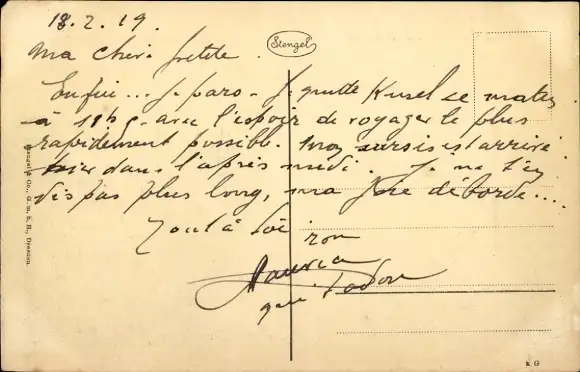 18.2.19.
Stengel
Ma chère petite.
Enfin... je pars. Je quitte Kusel ce matin
à 11h5 avec l'espoir de voyager le plus
rapidement possible. Mon sursis est arrivé
hier dans l'après midi. Je ne t'en
dis pas plus long, ma joie déborde....
Tout à toi
ton
Maurice
qui t'adore
Stengel & Co., G. m. b. H., Dresden.
K G